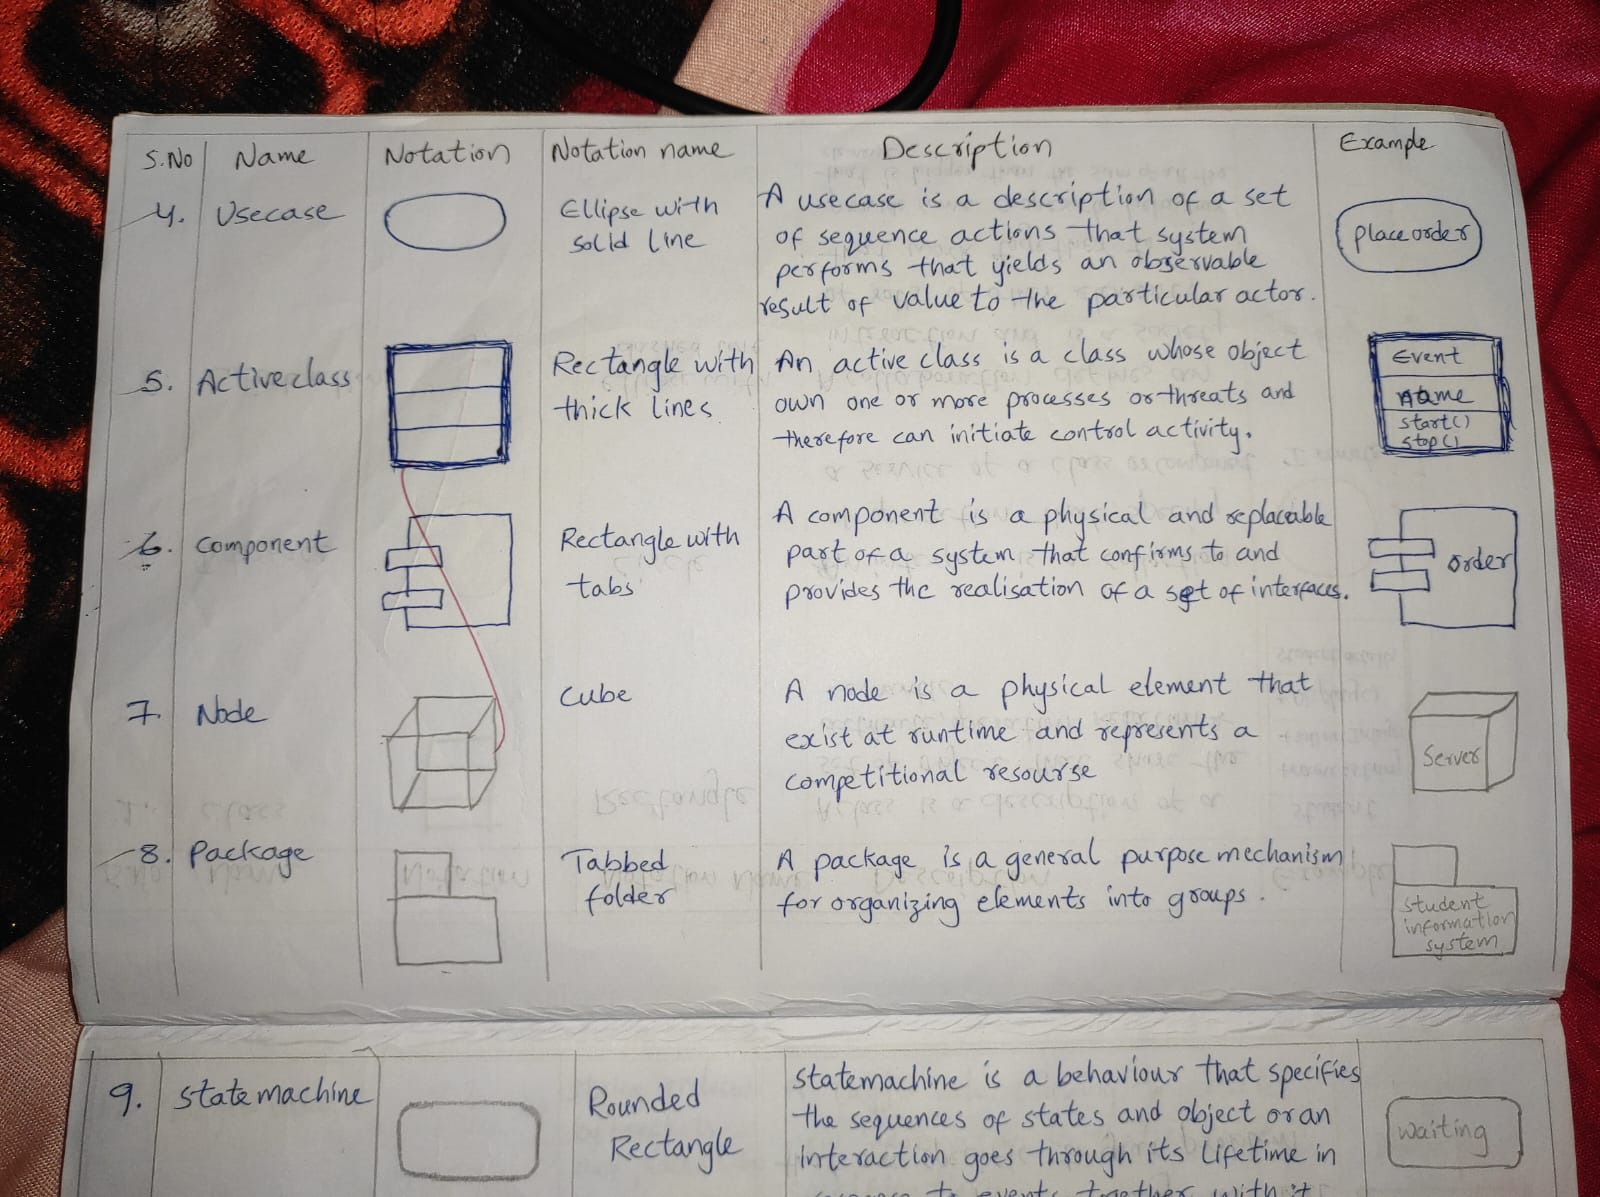 S.No Name Notation Notation name Description Example
4. Usecase Ellipse with solid line
A usecase is a description of a set
of sequence actions that system
performs that yields an observable
result of value to the particular actor.
place order
5. Active class Rectangle with thick lines
An active class is a class whose object
own one or more processes or threats and
therefore can initiate control activity.
Event
name
start()
stop()
6. component Rectangle with tabs
A component is a physical and replaceable
part of a system that confirms to and
provides the realisation of a set of interfaces.
order
7. Node Cube
A node is a physical element that
exist at runtime and represents a
competitional resourse
Server
8. Package Tabbed folder
A package is a general purpose mechanism
for organizing elements into groups.
student
information
system
9. state machine Rounded Rectangle
statemachine is a behaviour that specifies
the sequences of states and object or an
interaction goes through its lifetime in
to events together with it
waiting